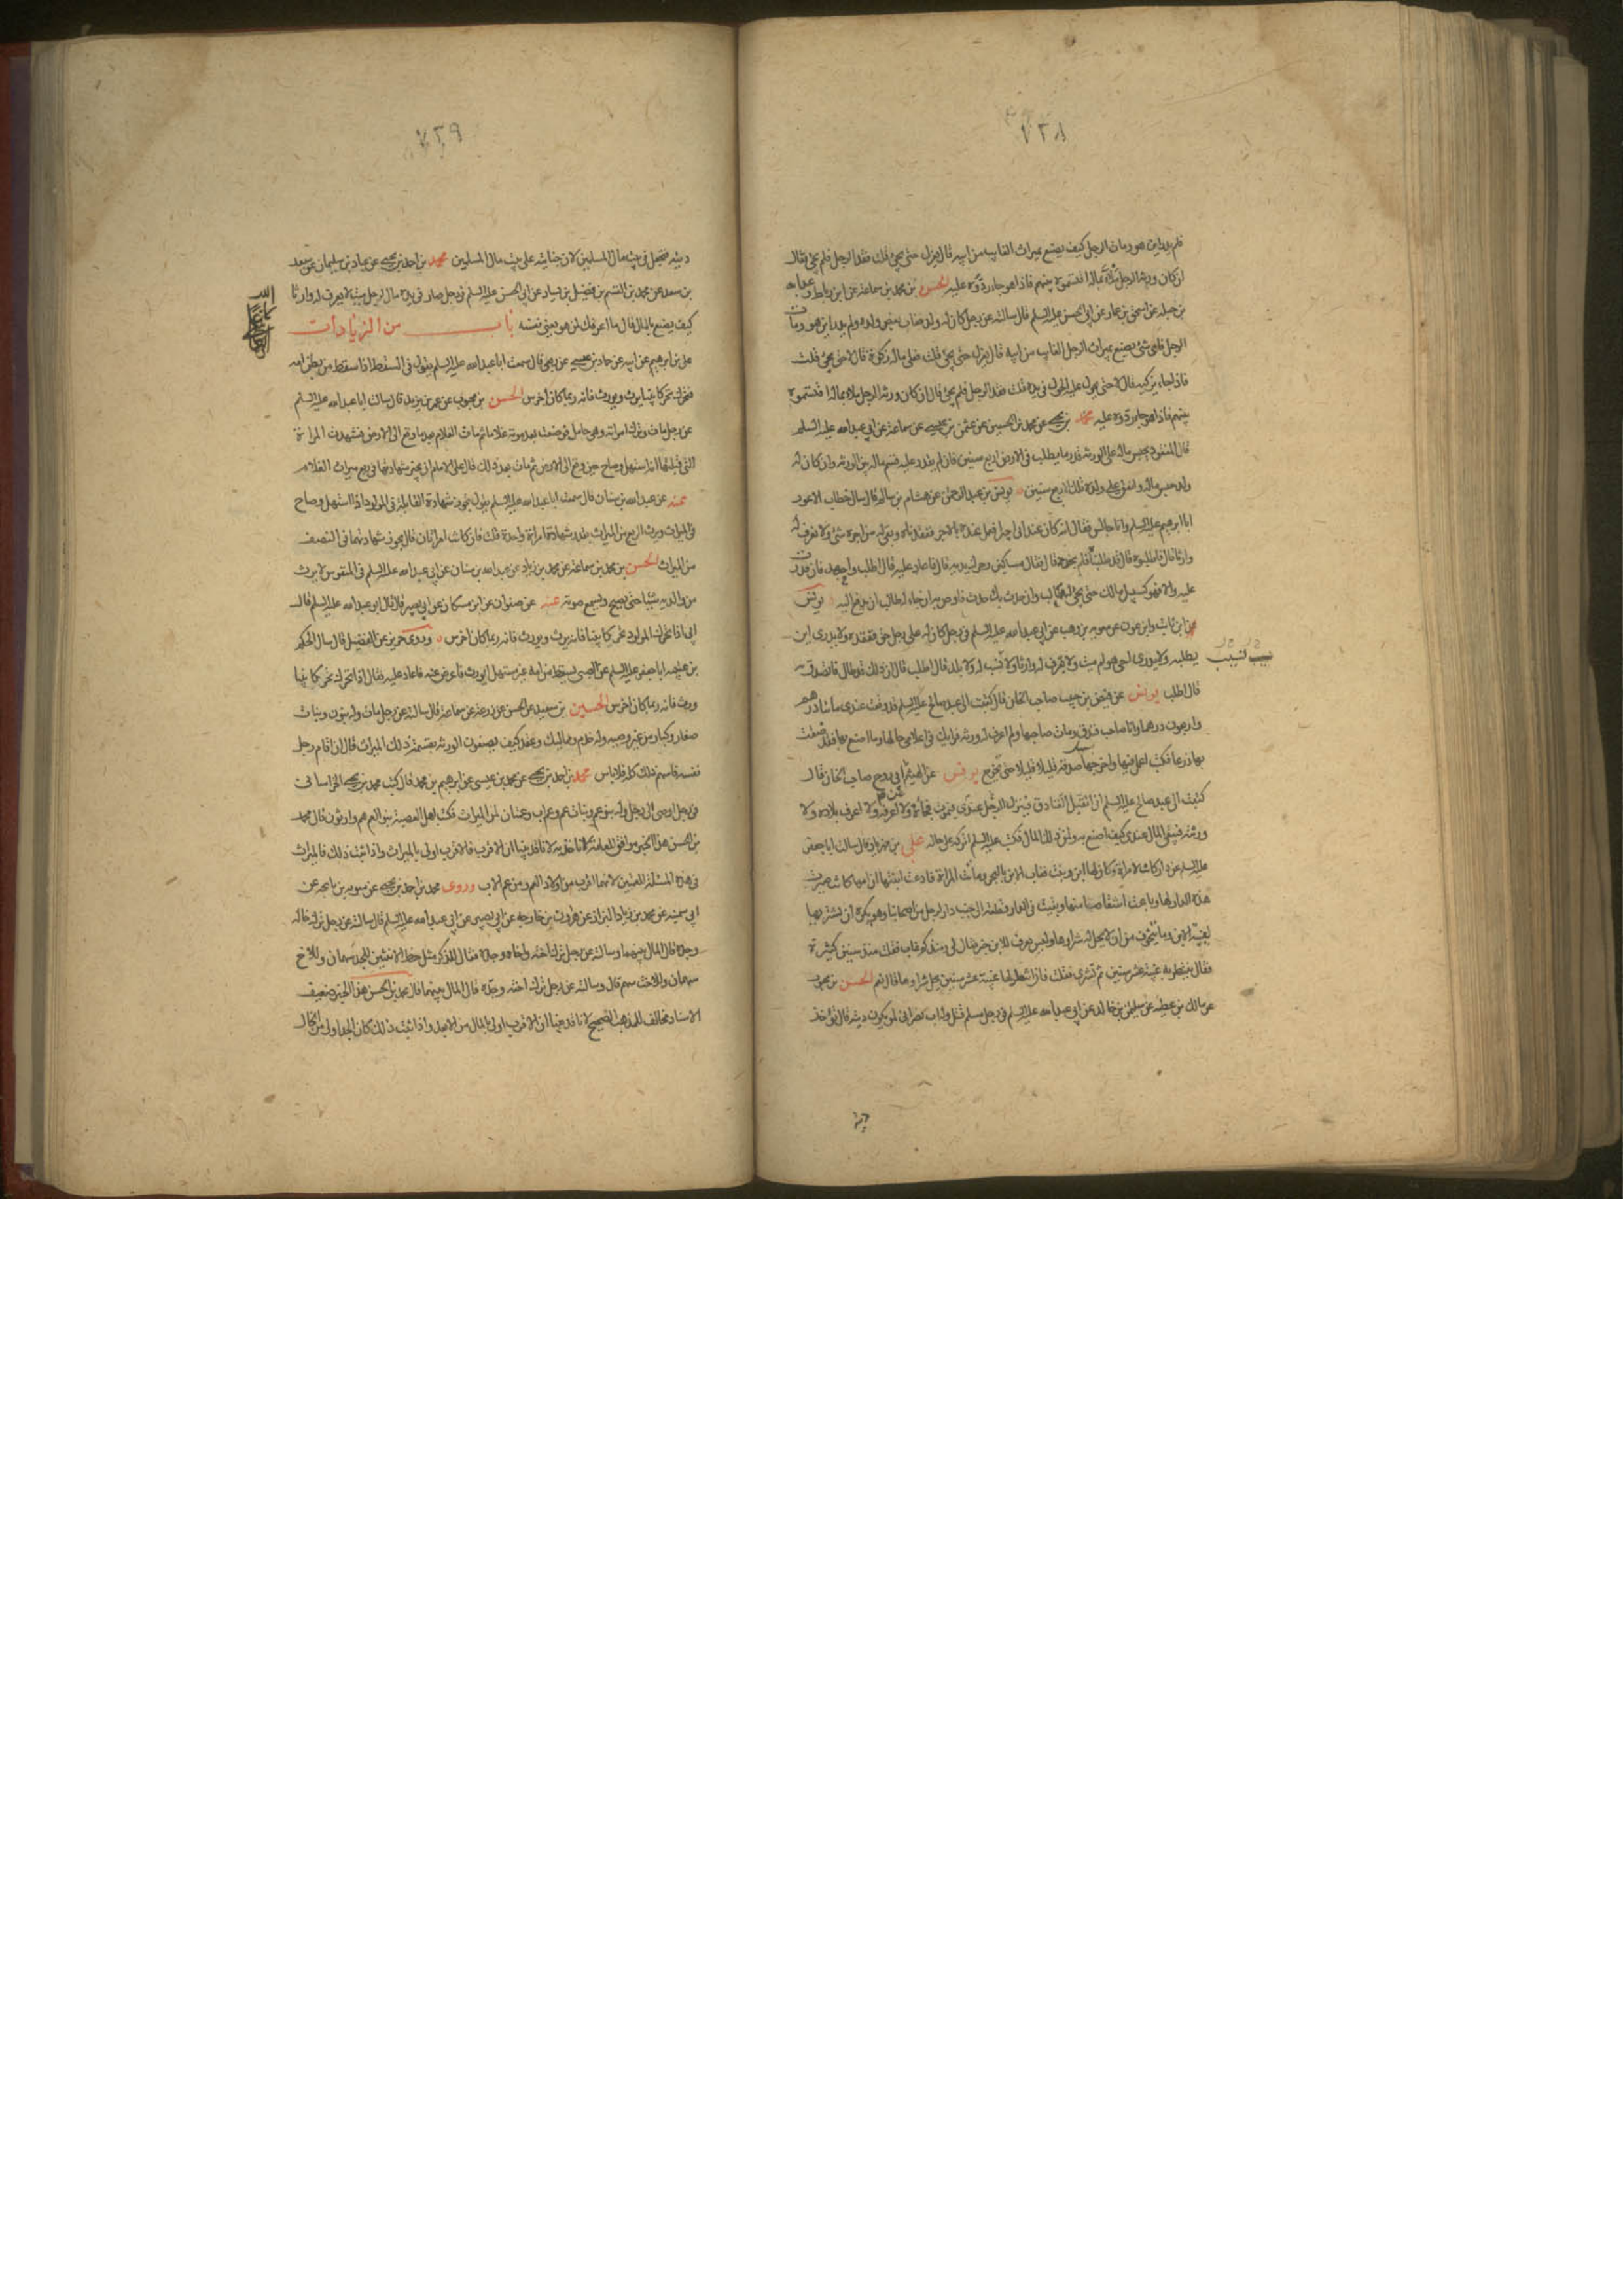 ٧٢٨
فلم يدر اين هو ومات الرجل كيف يصنع بميراث الغايب من ابيه قال يعزل حتى يجئ قلت فقد الرجل فلم يجئ فقال
ان كان ورثة الرجل ملاء بماله اقتسموه بينهم فاذا هو جاء ردوه عليه الحسن بن محمد بن سماعة عن ابن رباط وعبد الله
بن جبلة عن اسحق بن عمار عن ابي الحسن عليه السلم قال سالته عن رجل كان له ولد فغاب بعض ولده ولم يدر اين هو ومات
الرجل فاي شئ يصنع بميراث الرجل الغايب من ابيه قال يعزل حتى يجئ قلت فعلى ماله زكوة قال لا حتى يجئ قلت
فاذا جاء يزكيه قال لا حتى يحول عليه الحول في يده قلت فقد الرجل فلم يجئ قال ان كان ورثة الرجل ملاء بماله اقتسموه
بينهم فاذا هو جاء ردوه عليه محمد بن يحيى عن محمد بن الحسين عن عثمن بن عيسى عن سماعة عن ابي عبد الله عليه السلم
قال المفقود يحبس ماله على الورثة قدر ما يطلب في الارض اربع سنين فان لم يقدر عليه قسم ماله بين الورثة وان كان له
ولد حبس ماله وانفق على ولده تلك الاربع سنين يونس بن عبد الرحمن عن هشام بن سالم قال سال خطاب الاعور
ابا ابرهيم عليه السلم وانا جالس فقال انه كان عند ابي اجير يعمل عنده بالاجر ففقدناه وبقي له من اجره شئ ولا نعرف له
وارثا قال فاطلبوه قال قد طلبناه فلم نجده قال فقال مساكين وحرك يديه قال فاعاد عليه قال اطلب واجهد فان قدرت
عليه والا فهو كسبيل مالك حتى يجئ له طالب وان حدث بك حدث فاوص به ان جاء له طالب ان يدفع اليه يونس
عن ابن ثابت وابن عون عن معوية بن وهب عن ابي عبد الله عليه السلم في رجل كان له على رجل حق ففقده ولا يدري اين
يطلبه ولا يدري احي هو ام ميت ولا يعرف له وارثا ولا نسب له ولا بلد قال اطلب قال ان ذلك قد طال فاتصدق به
قال اطلب يونس عن فيض بن حبيب صاحب الخان قال كتبت الى عبد صالح عليه السلم قد وقعت عندي مائتا درهم
واربعون درهما وانا صاحب فندق ومات صاحبها ولم اعرف له ورثة فرايك في اعلامي حالها وما اصنع بها فقد ضقت
بها ذرعا فكتب اعمل فيها واخرجها صدقة قليلا قليلا حتى تخرج يونس عن الهيثم ابي روح صاحب الخان قال
كتبت الى عبد صالح عليه السلم اني اتقبل الفنادق فينزل الرجل عندي فيموت فجاة ولا اعرفه ولا اعرف بلاده ولا
ورثته فيبقى المال عندي كيف اصنع به ولمن ذلك المال فكتب عليه السلم اتركه على حاله علي بن مهزيار قال سالت ابا جعفر
عليه السلم عن دار كانت لامراة وكان لها ابن وبنت فغاب الابن بالبحر وماتت المراة فادعت ابنتها ان امها كانت صيرت
هذه الدار لها وباعت اشقاصا منها وبقيت في الدار قطعة الى جنب دار لرجل من اصحابنا وهو يكره ان يشتريها
لغيبة الابن وما يتخوف من ان لا يحل له شراوها وليس يعرف للابن خبر فقال لي ومنذ كم غاب فقلت منذ سنين كثيرة
فقال ينتظر به غيبة عشر سنين ثم تشترى فقلت فاذا انتظر بها غيبة عشر سنين يحل شراوها قال نعم الحسن بن محبوب
عن مالك بن عطية عن سليمن بن خالد عن ابي عبد الله عليه السلم في رجل مسلم قتل وله اب نصراني لمن يكون ديته قال تؤخذ
ديته
٧٢٩
ديته فتجعل في بيت مال المسلمين لان جنايته على بيت مال المسلمين محمد بن احمد بن يحيى عن عباد بن سليمان عن سعد
بن سعد عن محمد بن القسم بن فضيل بن يسار عن ابي الحسن عليه السلم في رجل صار في يده مال لرجل ميت لا يعرف له وارثا
كيف يصنع بالمال قال ما اعرفك لمن هو يعني نفسه باب من الزيادات
علي بن ابرهيم عن ابيه عن حماد بن عيسى عن ربعي قال سمعت ابا عبد الله عليه السلم يقول في السقط اذا سقط من بطن امه
فتحرك تحركا بينا يرث ويورث فانه ربما كان اخرس الحسن بن محبوب عن عمر بن يزيد قال سالت ابا عبد الله عليه السلم
عن رجل مات وترك امراته وهي حامل فوضعت بعد موته غلاما ثم مات الغلام بعد ما وقع الى الارض فشهدت المراة
التي قبلتها انه استهل وصاح حين وقع الى الارض ثم مات بعد ذلك قال على الامام ان يجيز شهادتها في ربع ميراث الغلام
عنه عن عبد الله بن سنان قال سمعت ابا عبد الله عليه السلم يقول تجوز شهادة القابلة في المولود اذا استهل وصاح
في الميراث ويورث الربع من الميراث بقدر شهادة امراة واحدة قلت فان كانت امراتان قال تجوز شهادتهما في النصف
من الميراث الحسن بن محمد بن سماعة عن محمد بن زياد عن عبد الله بن سنان عن ابي عبد الله عليه السلم في المنفوس لا يرث
من والديه شيئا حتى يصيح ويسمع صوته عنه عن صفوان عن ابن مسكان عن ابي بصير قال قال ابو عبد الله عليه السلم قال
ابي اذا تحرك المولود تحركا بينا فانه يرث ويورث فانه ربما كان اخرس وروى حريز عن الفضيل قال سال الحكم
بن عتيبة ابا جعفر عليه السلم عن الصبي يسقط من امه غير مستهل ايورث فاعرض عنه فاعاد عليه فقال اذا تحرك تحركا بينا
ورث فانه ربما كان اخرس الحسين بن سعيد عن الحسن عن زرعة عن سماعة قال سالته عن رجل مات وله بنون وبنات
صغار وكبار من غير وصية وله خدم ومماليك وعقد كيف يصنعون الورثة بقسمة ذلك الميراث قال ان قام رجل
ثقة قاسم ذلك كله فلا باس محمد بن احمد بن يحيى عن محمد بن عيسى عن ابرهيم بن محمد قال كتب محمد بن يحيى الخراساني
في رجل اوصى الى رجل وله بنو عم وبنات عم وعم اب وعمتان لمن الميراث فكتب اهل العصبة بنو العم هم وارثون قال محمد
بن الحسن هذا الخبر موافق للعامة لانا قد بينا ان الاقرب فالاقرب اولى بالميراث واذا ثبت ذلك فالميراث
في هذه المسئلة للعمتين لانهما اقرب من اولاد العم ومن عم الاب وروى محمد بن احمد بن يحيى عن
ابي سمينة عن محمد بن زياد البزاز عن هارون بن خارجة عن ابي بصير عن ابي عبد الله عليه السلم قال سالته عن رجل ترك خاله
وجده قال المال بينهما وسالته عن رجل ترك اخته واخاه وجده فقال للذكر مثل حظ الانثيين للجد سهمان وللاخ
سهمان وللاخت سهم قال وسالته عن رجل ترك اخته وجده قال المال بينهما قال محمد بن الحسن هذا الخبر ضعيف
الاسناد مخالف للمذهب الصحيح لانا قد بينا ان الاقرب اولى بالمال من الابعد واذا ثبت ذلك كان الجد اولى من الخال